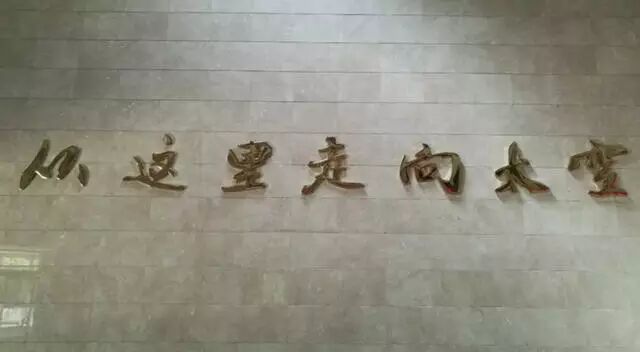 从这里走向太空